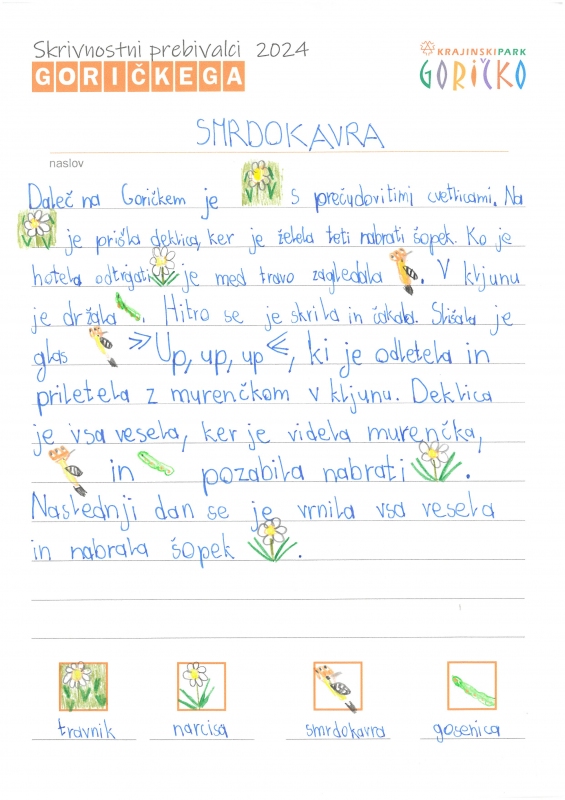 Skrivnostni prebivalci 2024
GORIČKEGA
KRAJINSKIPARK
GORIČKO
SMRDOKAVRA
naslov
Daleč na Goričkem je s prečudovitimi cvetlicami. Na
je prišla deklica, ker je želela teti nabrati šopek. Ko je
hotela odtrgati je med travo zagledala . V kljunu
je držala . Hitro se je skrila in čakala. Slišala je
glas »Up, up, up«, ki je odletela in
priletela z murenčkom v kljunu. Deklica
je vsa vesela, ker je videla murenčka,
in pozabila nabrati .
Naslednji dan se je vrnila vsa vesela
in nabrala šopek .
travnik narcisa smrdokavra gosenica